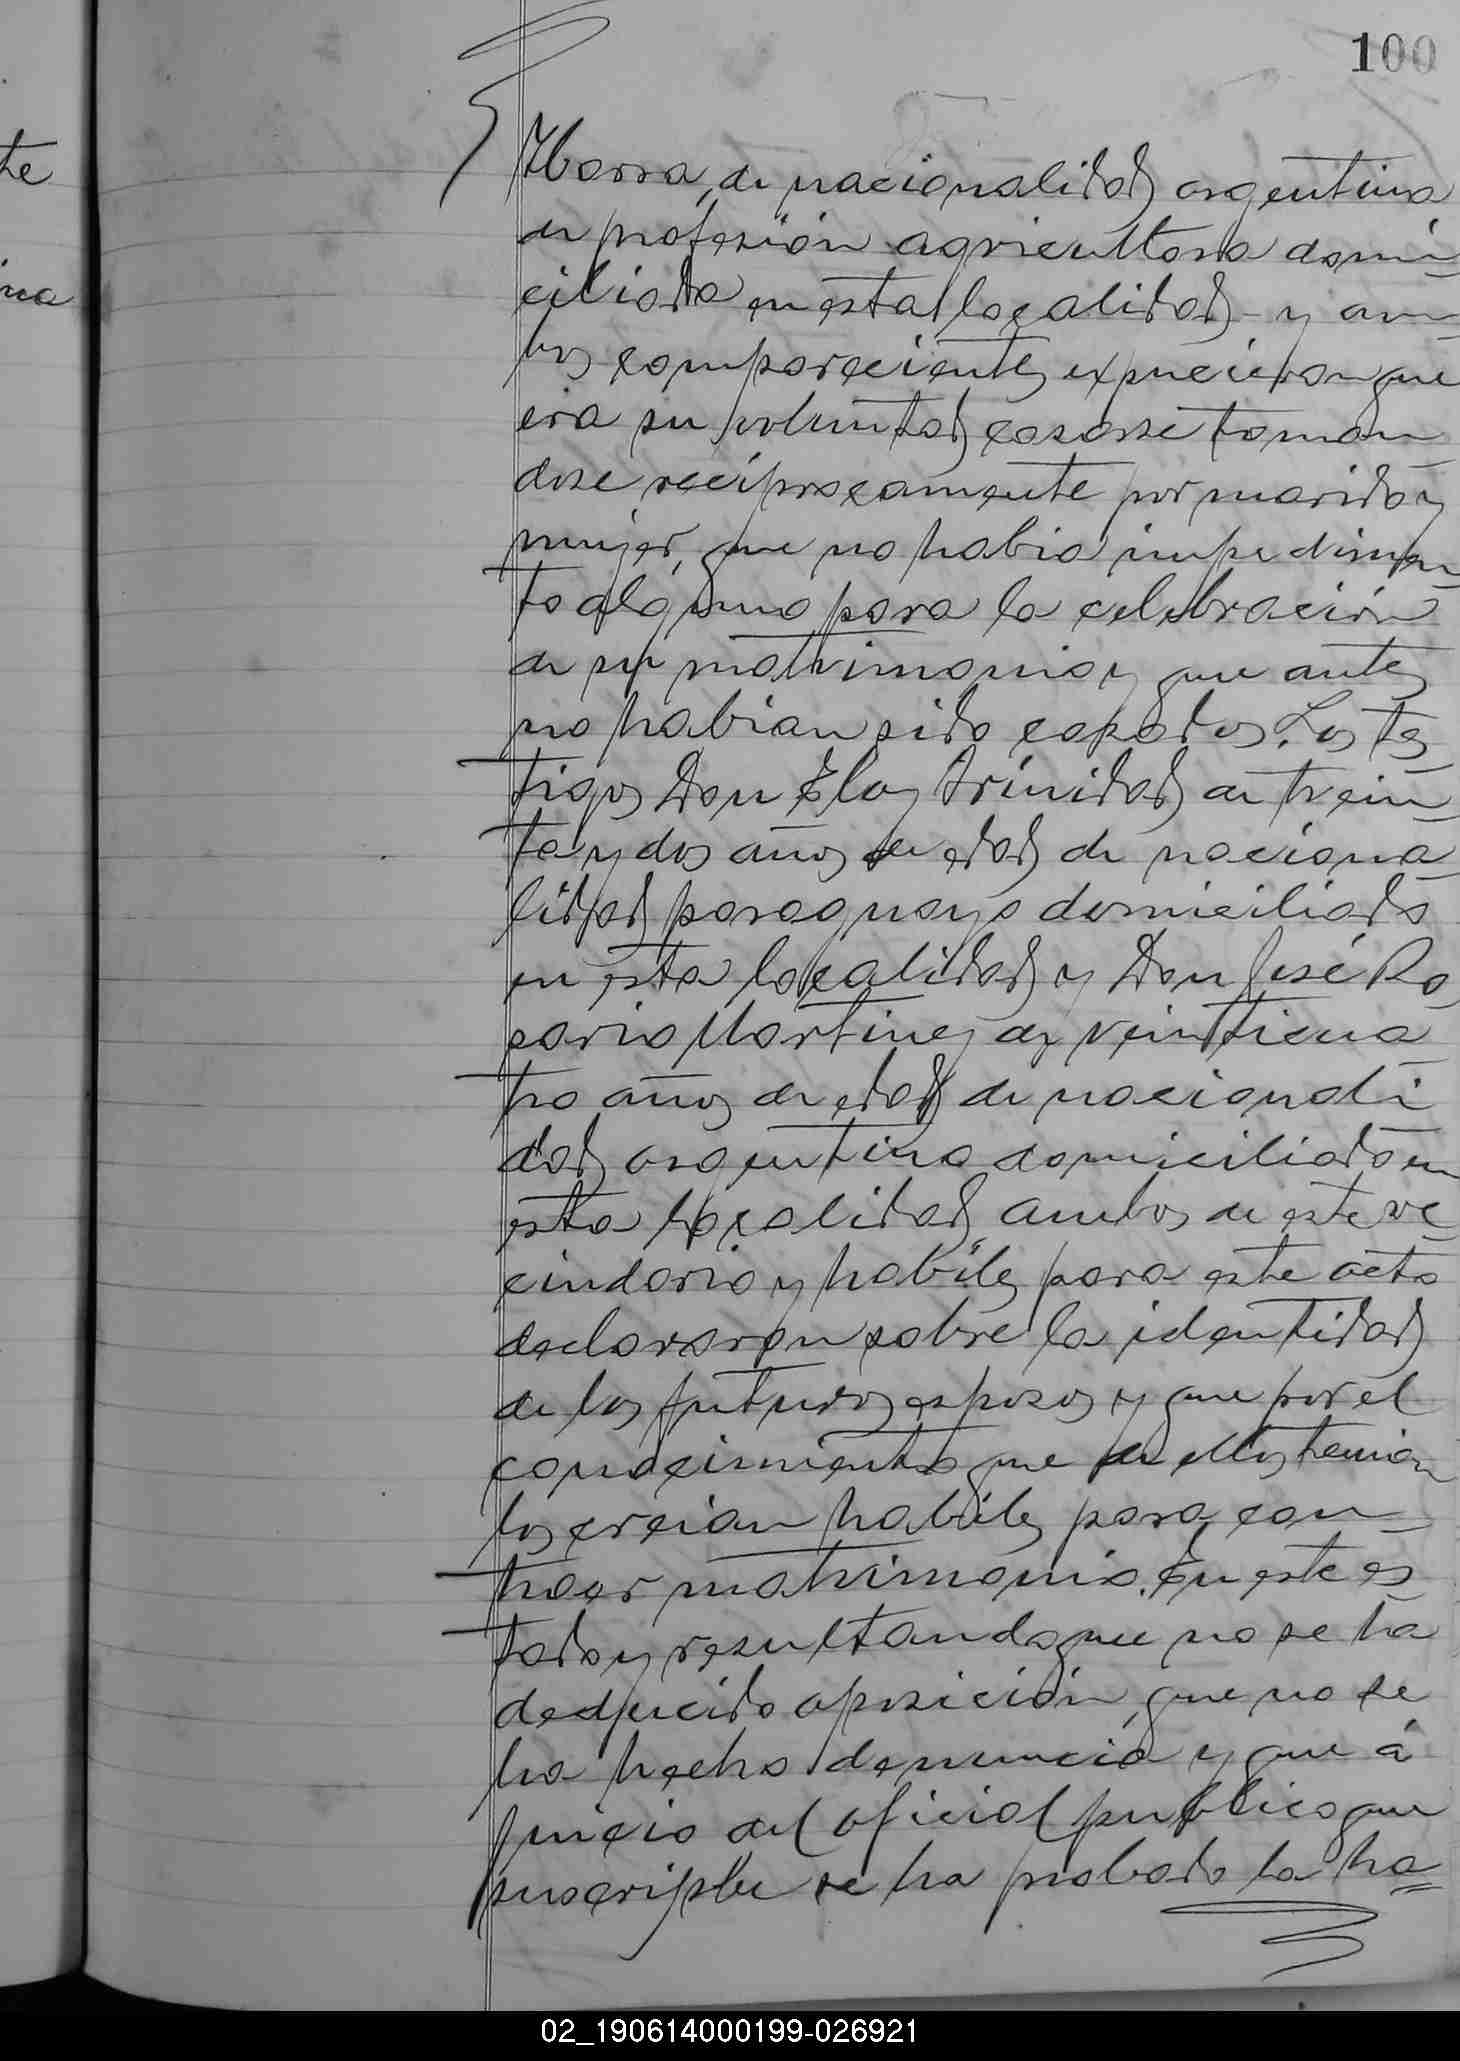 100
te
na
Ibarra, de nacionalidad argentina
de profesión agricultora domi
ciliada en esta localidad y am
bos comparecientes expucieron que
era su voluntad casarse toman
dose recíprocamente por marido y
mujer, que no habia impedimen
to alguno para la celebración
de su matrimonio y que antes
no habian sido casados. Los tes
tigos Don Eloy Trinidad de trein
ta y dos años de edad de naciona
lidad paraguayo domiciliado
en esta localidad y Don José Ro
sario Martinez de veinticua
tro años de edad de nacionali
dad argentino domiciliado en
esta localidad, ambos de este ve
cindario y habiles para este acto
declararon sobre la identidad
de los futuros esposos y que por el
conocimiento que de ellos tenian
los creian habiles para con
traer matrimonio. En este es
tado y resultando que no se ha
deducido oposición, que no se
ha hecho denuncia y que á
juicio del oficial publico que
suscripbe se ha probado la ha
02_190614000199-026921